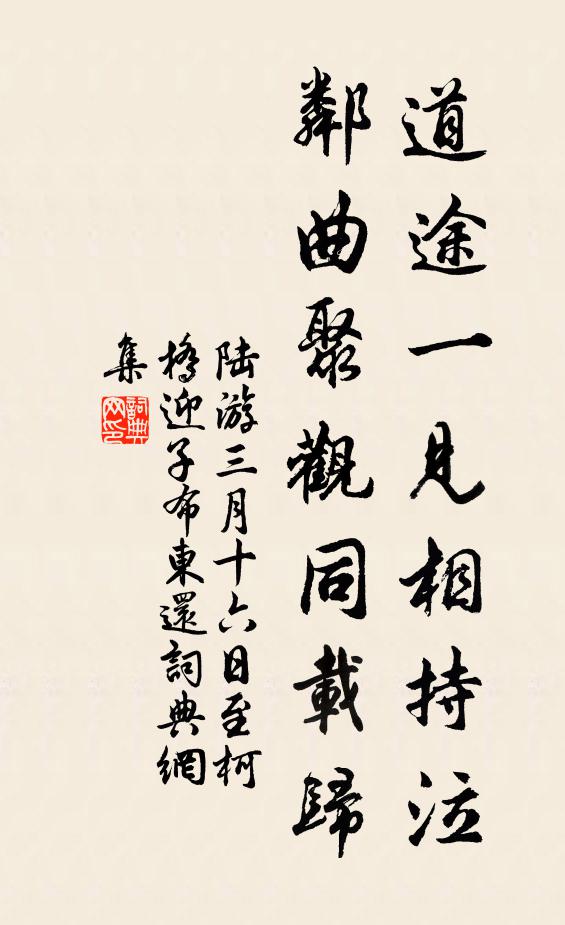 道途一見相持泣
鄰曲聚觀同載歸
陸游三月十六日至柯
橋迎子布東還詞典網
集
詞典
网印